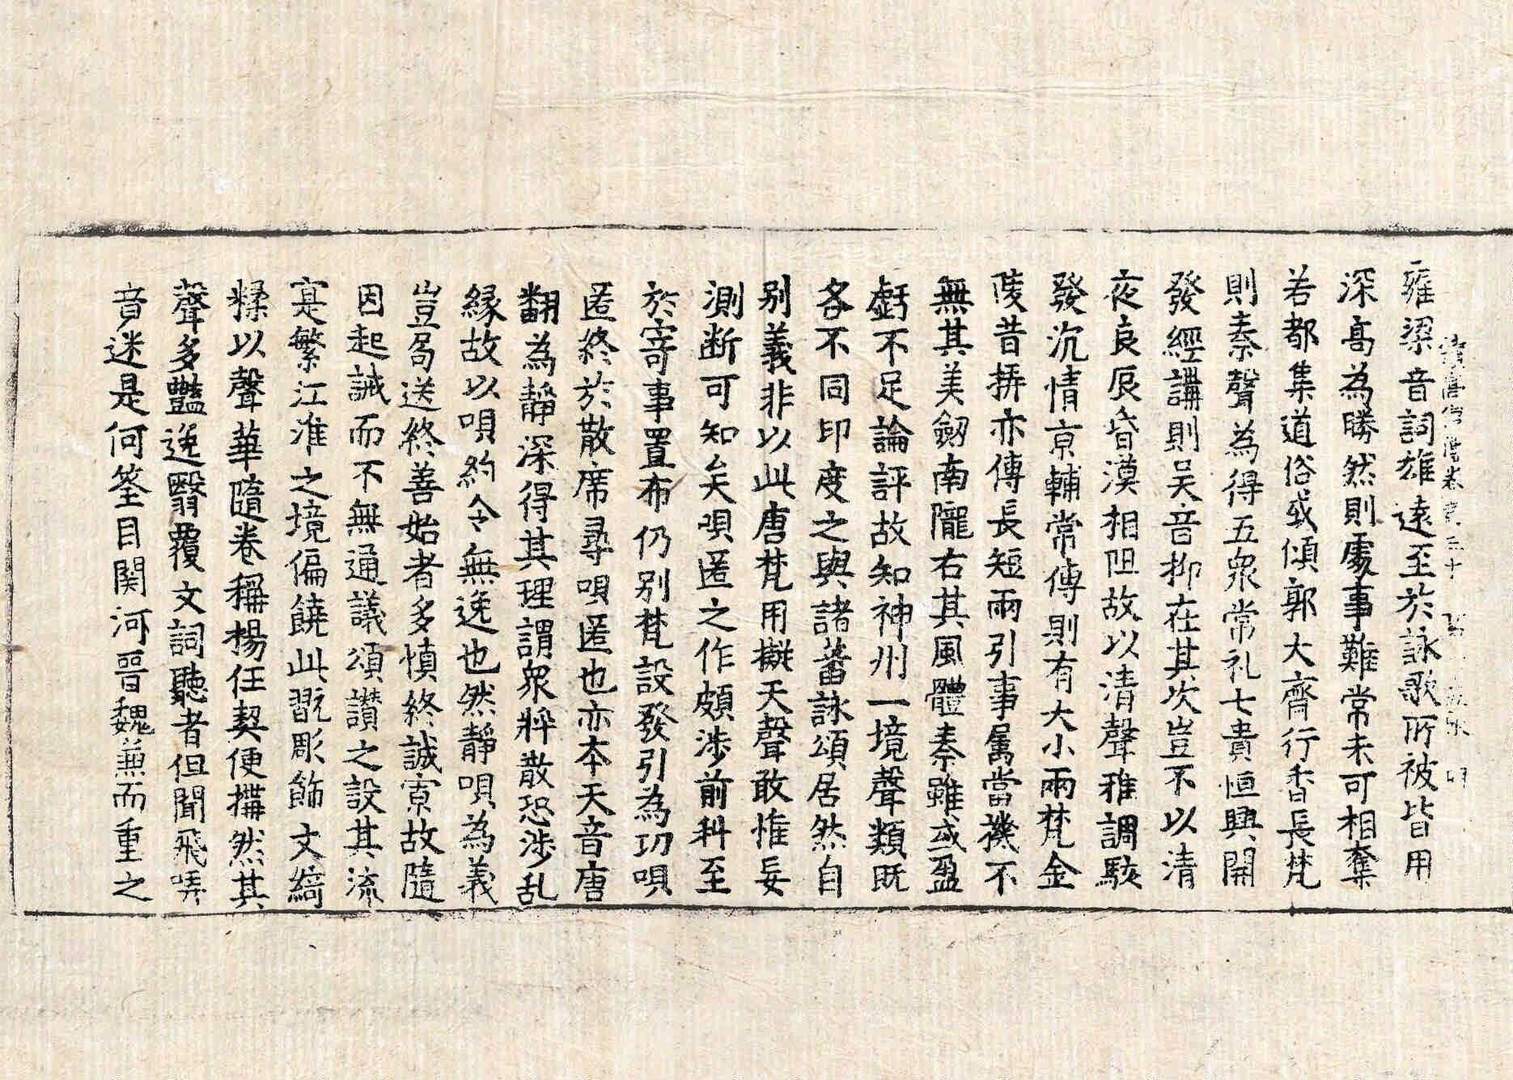 雍梁音詞雄遠至於詠歌所被皆用
深髙為勝然則處事難常未可相奪
若都集道俗或傾郭大齊行香長梵
則秦聲為得五衆常礼七貴恒興開
發經講則吴音抑在其次豈不以清
夜良辰昏漠相阻故以清聲雅調駭
發沉情京輔常傳則有大小兩梵金
陵昔拼亦傳長短兩引事属當機不
無其美劒南隴右其風體秦雖或盈
虧不足論評故知神州一境聲類既
各不同印度之與諸蕃詠頌居然自
别義非以此唐梵用擬天聲敢惟妄
測断可知矣唄匿之作頗涉前科至
於寄事置布仍别梵設發引為功唄
匿終於散席尋唄匿也亦本天音唐
翻為靜深得其理謂衆將散恐涉乱
緣故以唄約令無逸也然靜唄為義
豈局送終善始者多慎終誠寡故隨
因起誡而不無通議頌讚之設其流
寔繁江淮之境偏饒此翫彫飾文綺
糅以聲華隨卷稱揚任契便搆然其
聲多艷逸翳覆文詞聽者但聞飛弄
音迷是何筌目関河晉魏兼而重之